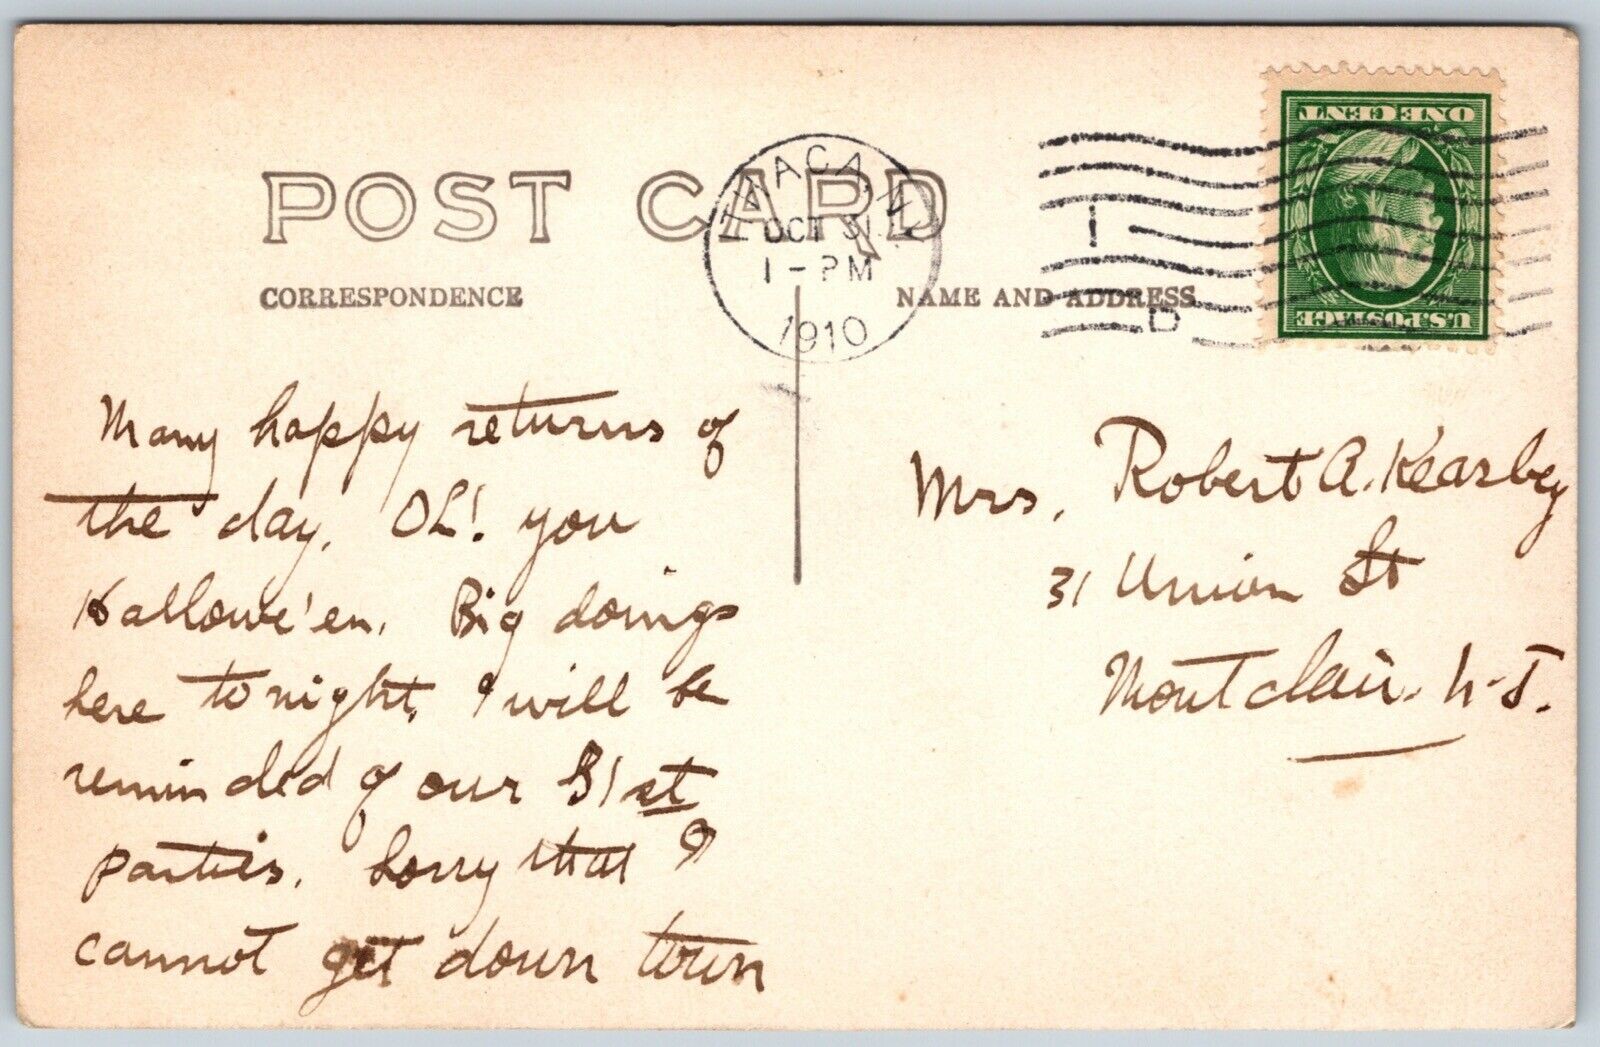 POST CARD
CORRESPONDENCE
NAME AND ADDRESS
ITHACA, N.Y.
OCT 31
1 - PM
1910
1
D
ONE CENT
U.S. POSTAGE
Many happy returns of
the day. Oh! you
Hallowe'en. Big doings
here tonight. I will be
reminded of our 31st
parties. Sorry that I
cannot get down town
Mrs. Robert A. Kearsbey
31 Union St
Montclair. N-J.